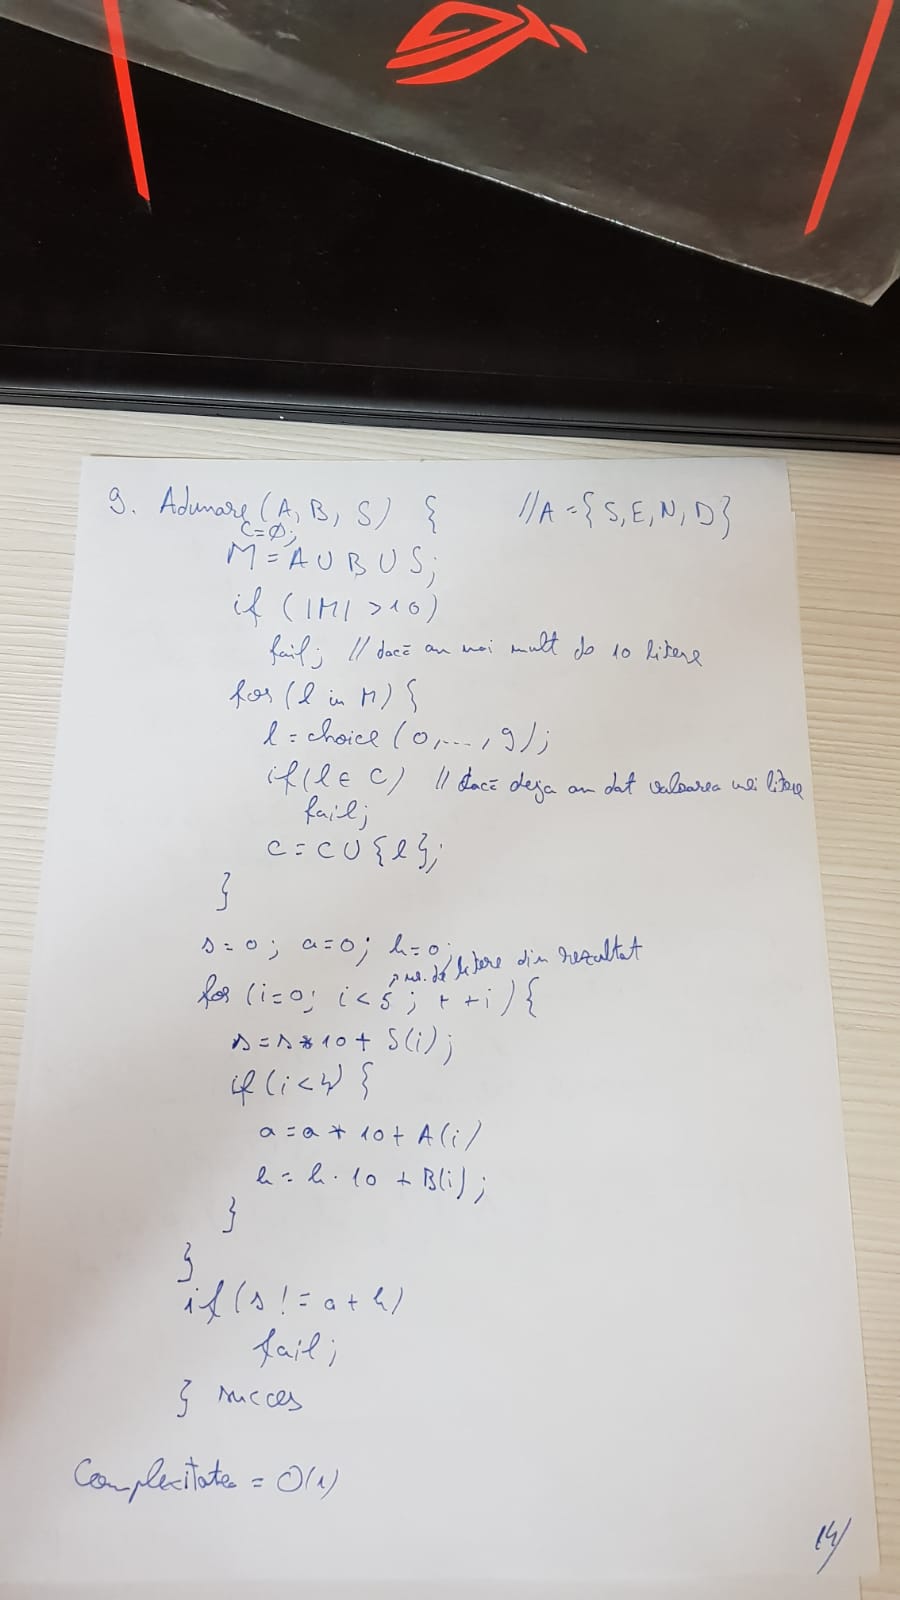 9. Adunare (A, B, S) { //A = {S, E, N, D}
C=∅;
M = A U B U S;
if (|M| > 10)
fail; // dacă am mai mult de 10 litere
for (l in M) {
l = choice (0,...,9);
if (l ∈ C) // dacă deja am dat valoarea unei litere
fail;
C = C U {l};
}
s = 0; a = 0; b = 0;
nr. de litere din rezultat
for (i=0; i < 5; ++i) {
s = s * 10 + S(i);
if (i < 4) {
a = a * 10 + A(i)
b = b · 10 + B(i);
}
}
if (s != a + b)
fail;
} succes
Complexitate = O(1)
14/